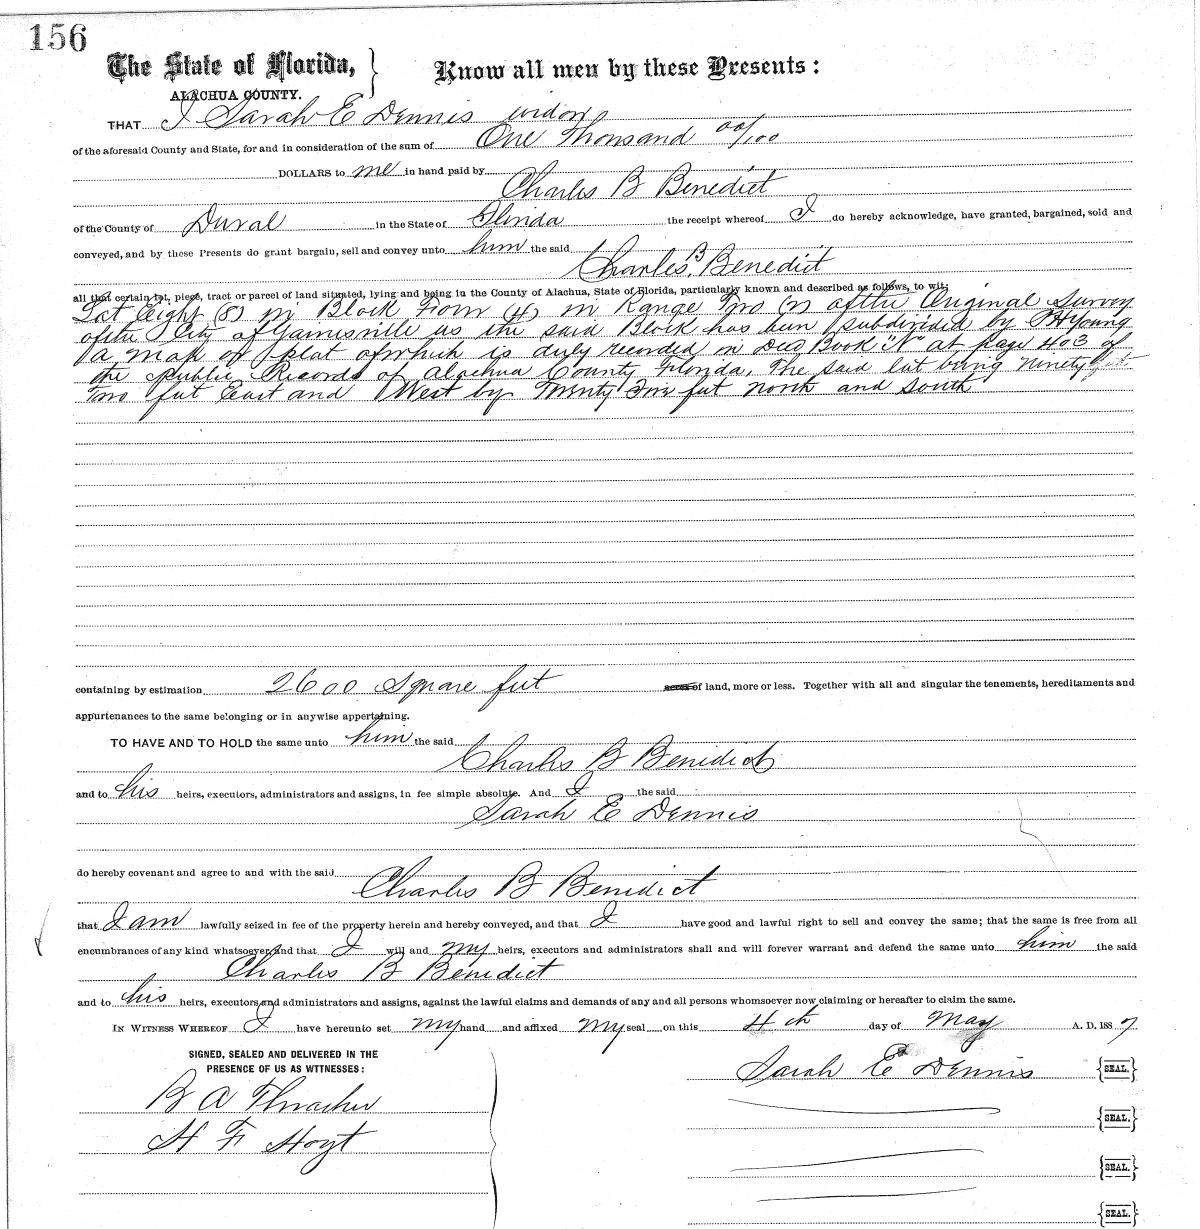 156
The State of Florida,
ALACHUA COUNTY.
Know all men by these Presents:
THAT I Sarah E Dennis widow
of the aforesaid County and State, for and in consideration of the sum of One Thousand 00/100
DOLLARS to me in hand paid by
Charles B Benedict
of the County of Duval in the State of Florida the receipt whereof I do hereby acknowledge, have granted, bargained, sold and
conveyed, and by these Presents do grant bargain, sell and convey unto him the said
Charles B Benedict
all that certain lot, piece, tract or parcel of land situated, lying and being in the County of Alachua, State of Florida, particularly known and described as follows, to wit;
Lot Eight (8) in Block Four (4) in Range Two (2) of the Original Survey
of the City of Gainesville as the said Block has been subdivided by Young
a map or plat of which is duly recorded in Deed Book "N" at page 403 of
the Public Records of Alachua County Florida. The said lot being Ninety
Two feet East and West by Twenty feet North and South
containing by estimation 2600 Square feet acres of land, more or less. Together with all and singular the tenements, hereditaments and
appurtenances to the same belonging or in anywise appertaining.
TO HAVE AND TO HOLD the same unto him the said
Charles B Benedict
and to his heirs, executors, administrators and assigns, in fee simple absolute. And I the said
Sarah E Dennis
do hereby covenant and agree to and with the said
Charles B Benedict
that I am lawfully seized in fee of the property herein and hereby conveyed, and that I have good and lawful right to sell and convey the same; that the same is free from all
encumbrances of any kind whatsoever, and that I will and my heirs, executors and administrators shall and will forever warrant and defend the same unto him the said
Charles B Benedict
and to his heirs, executors and administrators and assigns, against the lawful claims and demands of any and all persons whomsoever now claiming or hereafter to claim the same.
IN WITNESS WHEREOF I have hereunto set my hand and affixed my seal on this 4th day of May A. D. 1887
SIGNED, SEALED AND DELIVERED IN THE
PRESENCE OF US AS WITNESSES:
Sarah E Dennis {SEAL.}
B A Thrasher
{SEAL.}
H F Hoyt
{SEAL.}
{SEAL.}